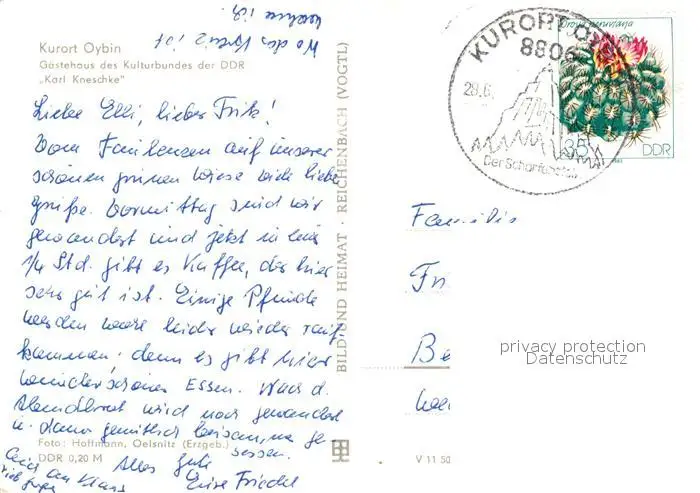 Wo das Kreuz ist
wohnen ich.
Kurort Oybin
Gästehaus des Kulturbundes der DDR
„Karl Kneschke"
Liebe Elli, lieber Fritz!
Vom Faulenzen auf unserer
schönen grünen Wiese viele liebe
Grüße. Vormittag sind wir
gewandert und jetzt in einer
1/4 Std. gibt es Kaffee, der hier
sehr gut ist. Einige Pfunde
werden wohl leider wieder rauf-
kommen: denn es gibt hier
wunderschönes Essen. Nach d.
Abendbrot wird noch gewandert
u. dann gemütlich beisammen ge-
sessen.
Foto: Hoffmann, Oelsnitz (Erzgeb.)
DDR 0,20 M
Alles Gute
Eure Friedel
Auch an Klaus
viele Grüße
BILD UND HEIMAT · REICHENBACH (VOGTL)
V 11 50
KURORT OYBIN
8806
29.6.
Der Scharfenstein
Oroya peruviana
35
DDR
Familie
Fri
Be
privacy protection
Datenschutz